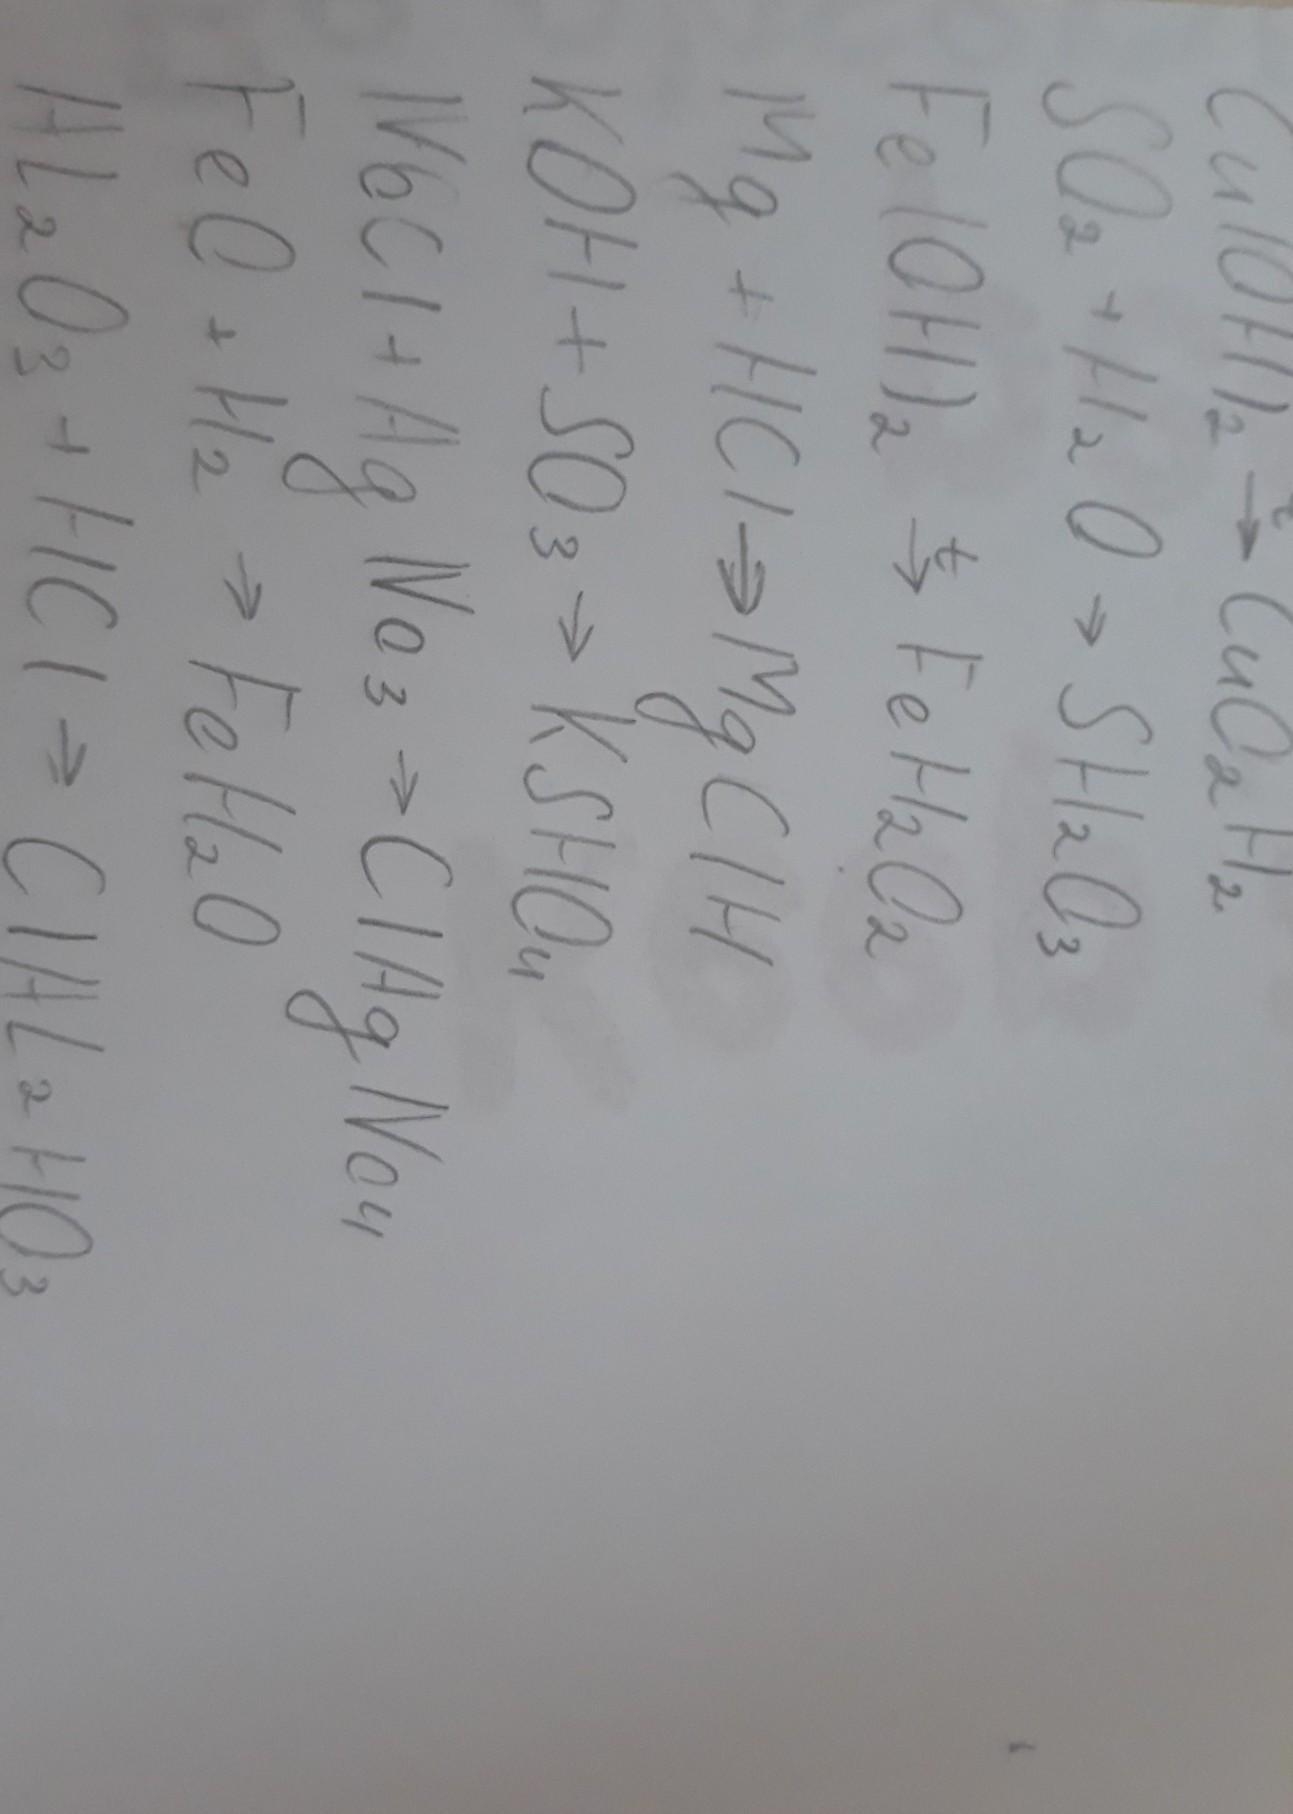 Cu(OH)₂ →ᵗ CuO₂H₂
SO₂ + H₂O → SH₂O₃
Fe(OH)₂ →ᵗ FeH₂O₂
Mg + HCl → MgClH
KOH + SO₃ → KSHO₄
NaCl + AgNo₃ → ClAgNo₄
FeO + H₂ → FeH₂O
AL₂O₃ + HCl → ClAL₂HO₃